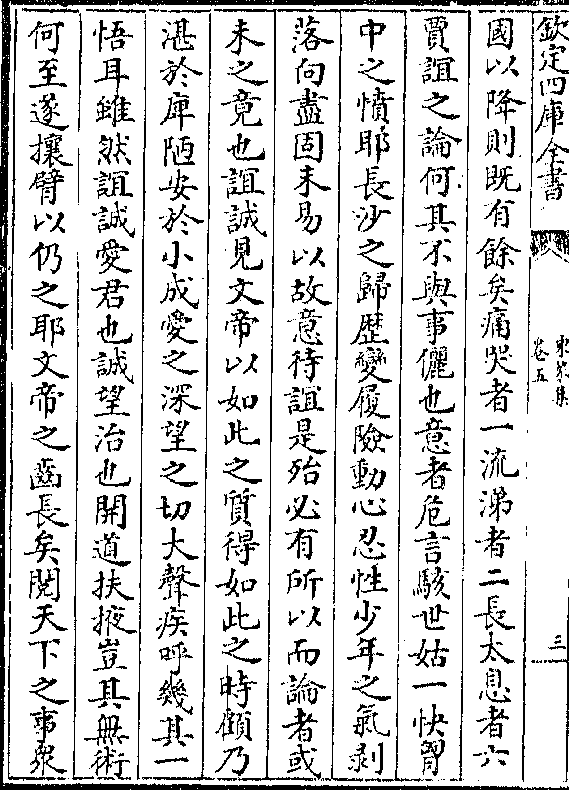 欽定四庫全書
東萊集
卷五
三
國以降則既有餘矣痛哭者一流涕者二長太息者六
賈誼之論何其不與事儷也意者危言駭世姑一快胷
中之憤耶長沙之歸歴變履險動心忍性少年之氣剥
落向盡固未易以故意待誼是殆必有所以而論者或
未之竟也誼誠見文帝以如此之質得如此之時顧乃
湛於庳陋安於小成愛之深望之切大聲疾呼幾其一
悟耳雖然誼誠愛君也誠望治也開道扶掖豈其無術
何至遂攘臂以仍之耶文帝之齒長矣閲天下之事衆